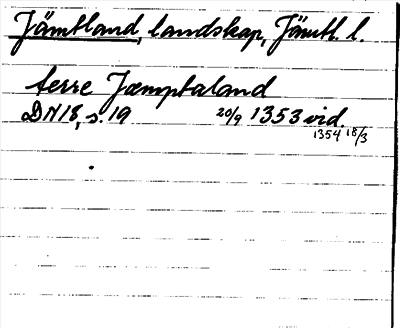 Jämtland, landskap, Jämtl. l.
terre Jæmptaland
DN 18, s. 19 20/9 1353 vid.
1354 18/3